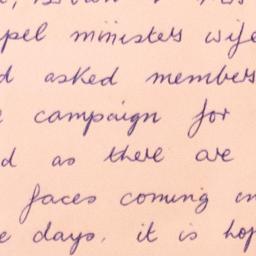 pel ministers wife
d asked members
campaign for
d as there are
faces coming in
e days. it is hop